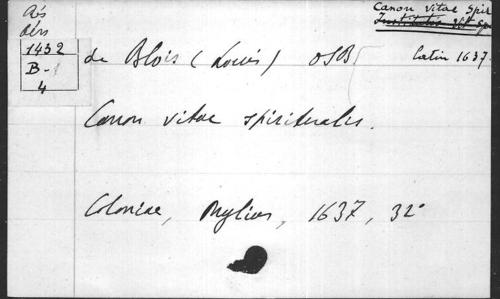 Canon vitae Spir
Rés
dérs
1432
B-1
4
de Blois (Louis) OSB
latin 1637.
Canon vitae spiritualis.
Coloniae, Mylius, 1637, 32°